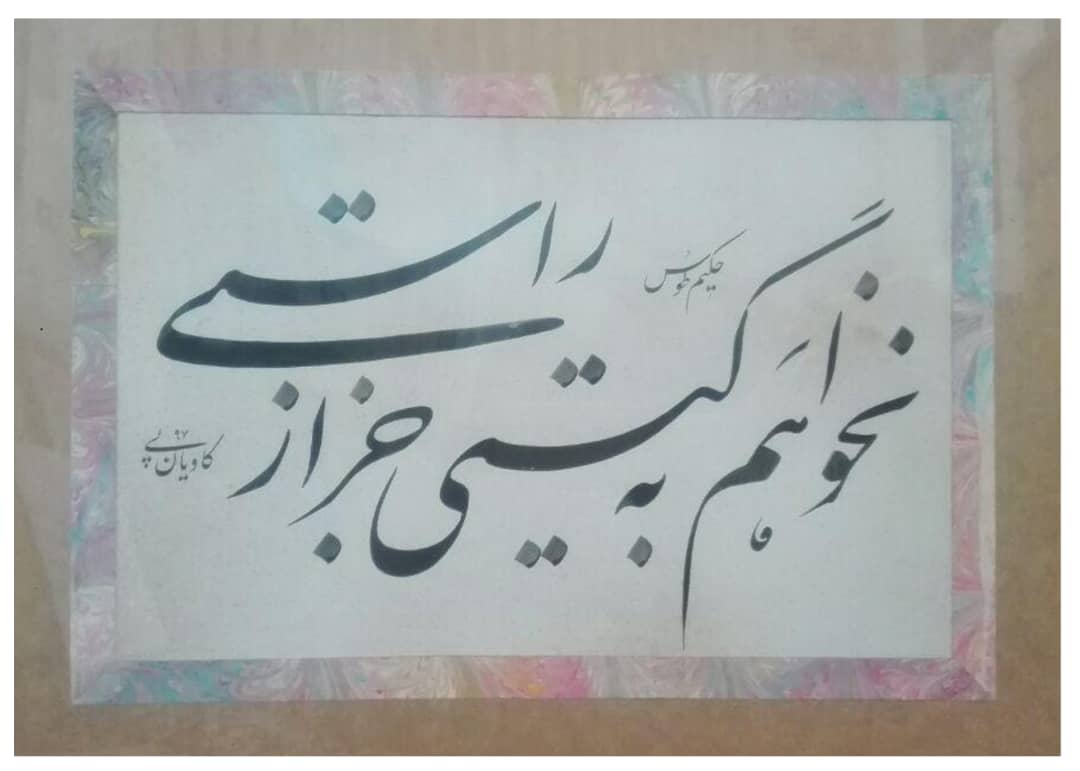 نخواهم به گیتی جز از راستی
حکیم طوس
کاویان پی ۹۷